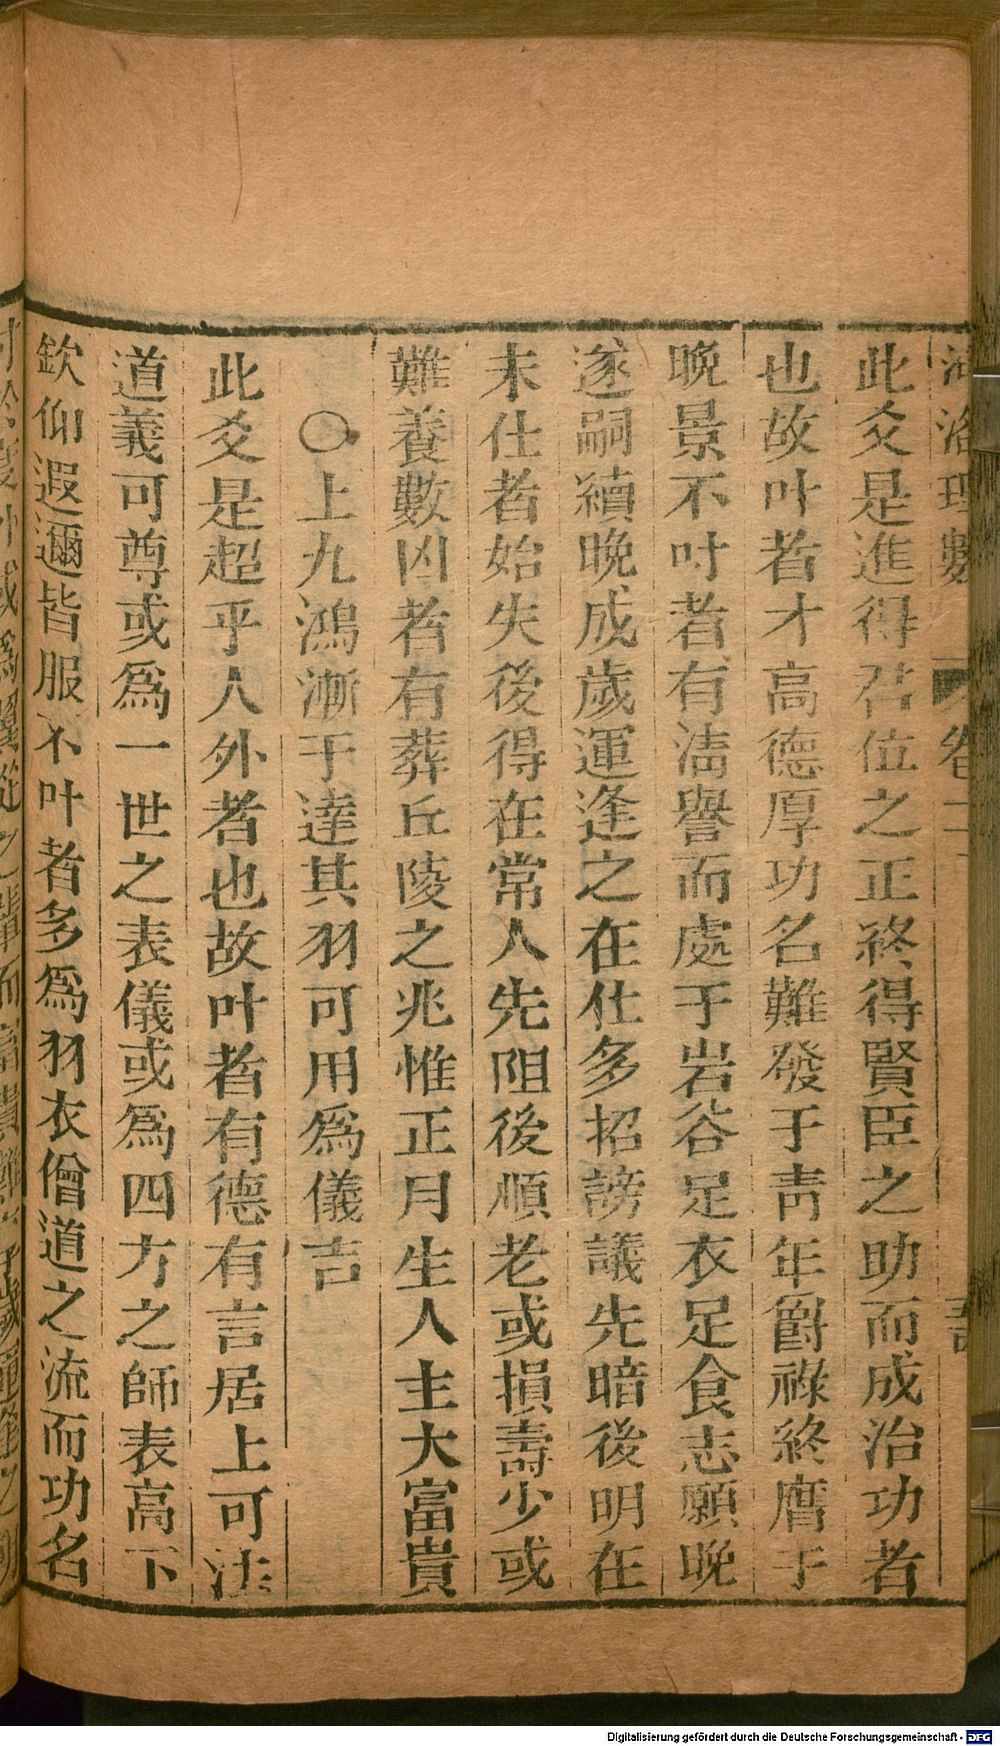 河洛理數 卷二
此爻是進得君位之正終得賢臣之助而成治功者
也故叶者才高德厚功名難發于靑年爵祿終膺于
晚景不叶者有淸譽而處于岩谷足衣足食志願晚
遂嗣續晚成歲運逢之在仕多招謗議先暗後明在
未仕者始失後得在常人先阻後順老或損壽少或
難養數凶者有葬丘陵之兆惟正月生人主大富貴
○上九鴻漸于逵其羽可用爲儀吉
此爻是超乎人外者也故叶者有德有言居上可法
道義可尊或爲一世之表儀或爲四方之師表高下
欽仰遐邇皆服不叶者多爲羽衣僧道之流而功名
Digitalisierung gefördert durch die Deutsche Forschungsgemeinschaft - DFG